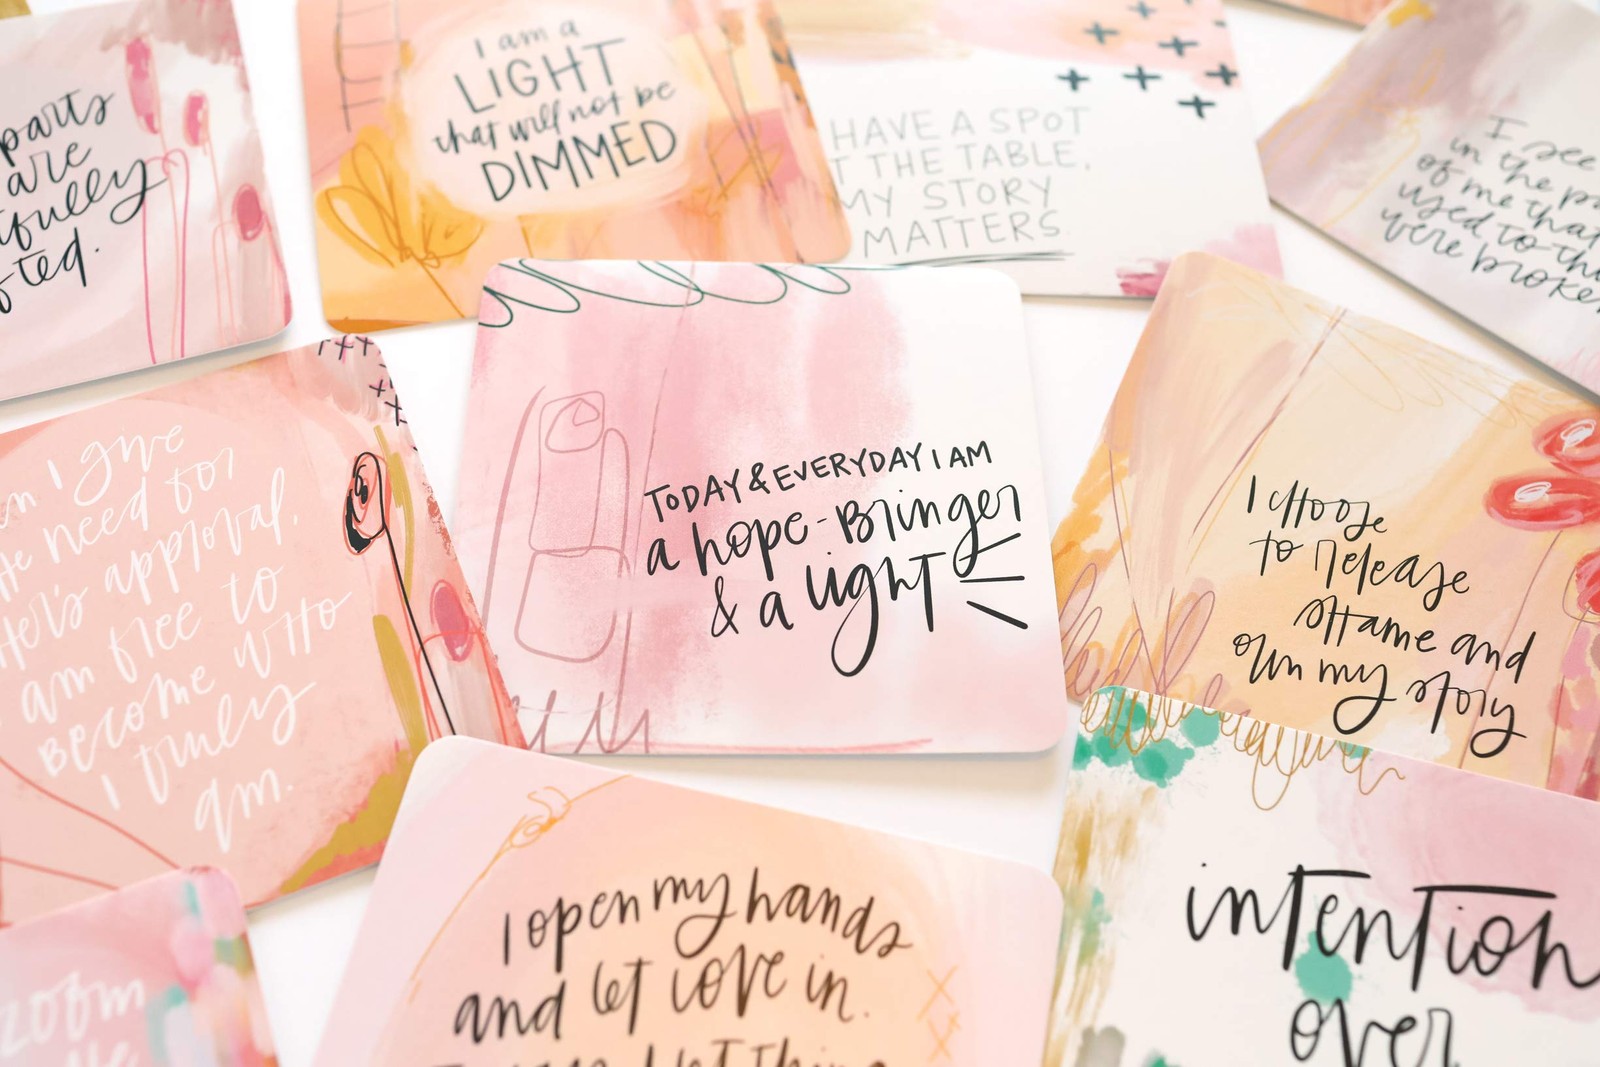 parts
are
I am a
LIGHT
that will not be
DIMMED
HAVE A SPOT
THE TABLE.
MY STORY
MATTERS.
I see
in the
of me that
used to
were
I give
need for
approval,
am free to
become who
I truly
am.
TODAY & EVERYDAY I AM
a hope-Bringer
& a light
I choose
to release
shame and
own my story
I open my hands
and let love in.
intention
over